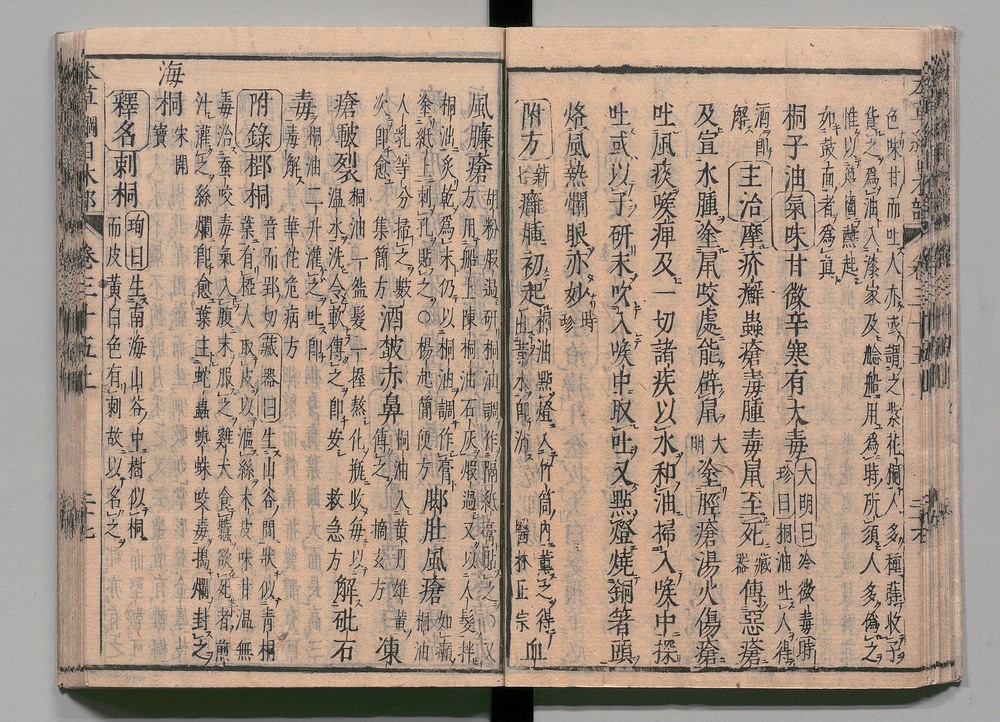 色味甘而吐人亦或謂之紫花桐人多種蒔收子
貨之爲油入漆家及艌船用爲時所須人多僞之
惟以篾圈蘸起
如鼓面者爲眞
桐子油氣味甘微辛寒有大毒大明曰冷微毒時珍曰桐油吐人得
酒即解主治摩疥癬蟲瘡毒腫毒鼠至死藏器傅惡瘡
及宣水腫塗鼠咬處能辟鼠大明塗脛瘡湯火傷瘡
吐風痰喉痺及一切諸疾以水和油掃入喉中探
吐或以子研末吹入喉中取吐又點燈燒銅筯頭
烙風熱爛眼亦妙時珍
附方新七癰腫初起桐油點燈入竹筒內薰之得出黃水即消醫林正宗血
風臁瘡胡粉煅過研桐油調作隔紙膏貼之○又方用船上陳桐油石灰煅過又以人髮拌
桐油炙乾爲末仍以桐油調作膏塗紙上刺孔貼之○楊起簡便方脚肚風瘡桐油如癩
人乳等分掃之數次即愈集簡方酒皶赤鼻桐油入黃丹雄黃傅之摘玄方凍
瘡皸裂桐油一盌髮一握熬化瓶收每以溫水洗令軟傅之即安救急方解砒石
毒桐油二升灌之吐即毒解華佗危病方
附錄榔桐音而郢切藏器曰生山谷間狀似青桐葉有椏人取皮以漚絲木皮味甘溫無
毒治蠶咬毒氣入腹末服之雞犬食蠶欲死者煎
汁灌之絲爛即愈葉主蛇蟲蜘蛛咬毒搗爛封之
海桐宋開寶
釋名刺桐珣曰生南海山谷中樹似桐而皮黃白色有刺故以名之
本草綱目木部 卷三十五上 二十七